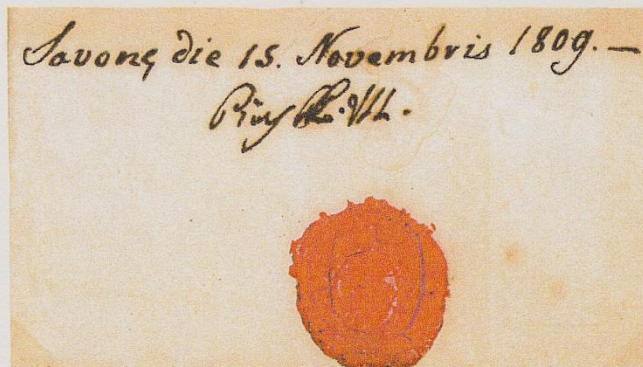 Savonę die 15. Novembris 1809. —
Pius PP. VII.